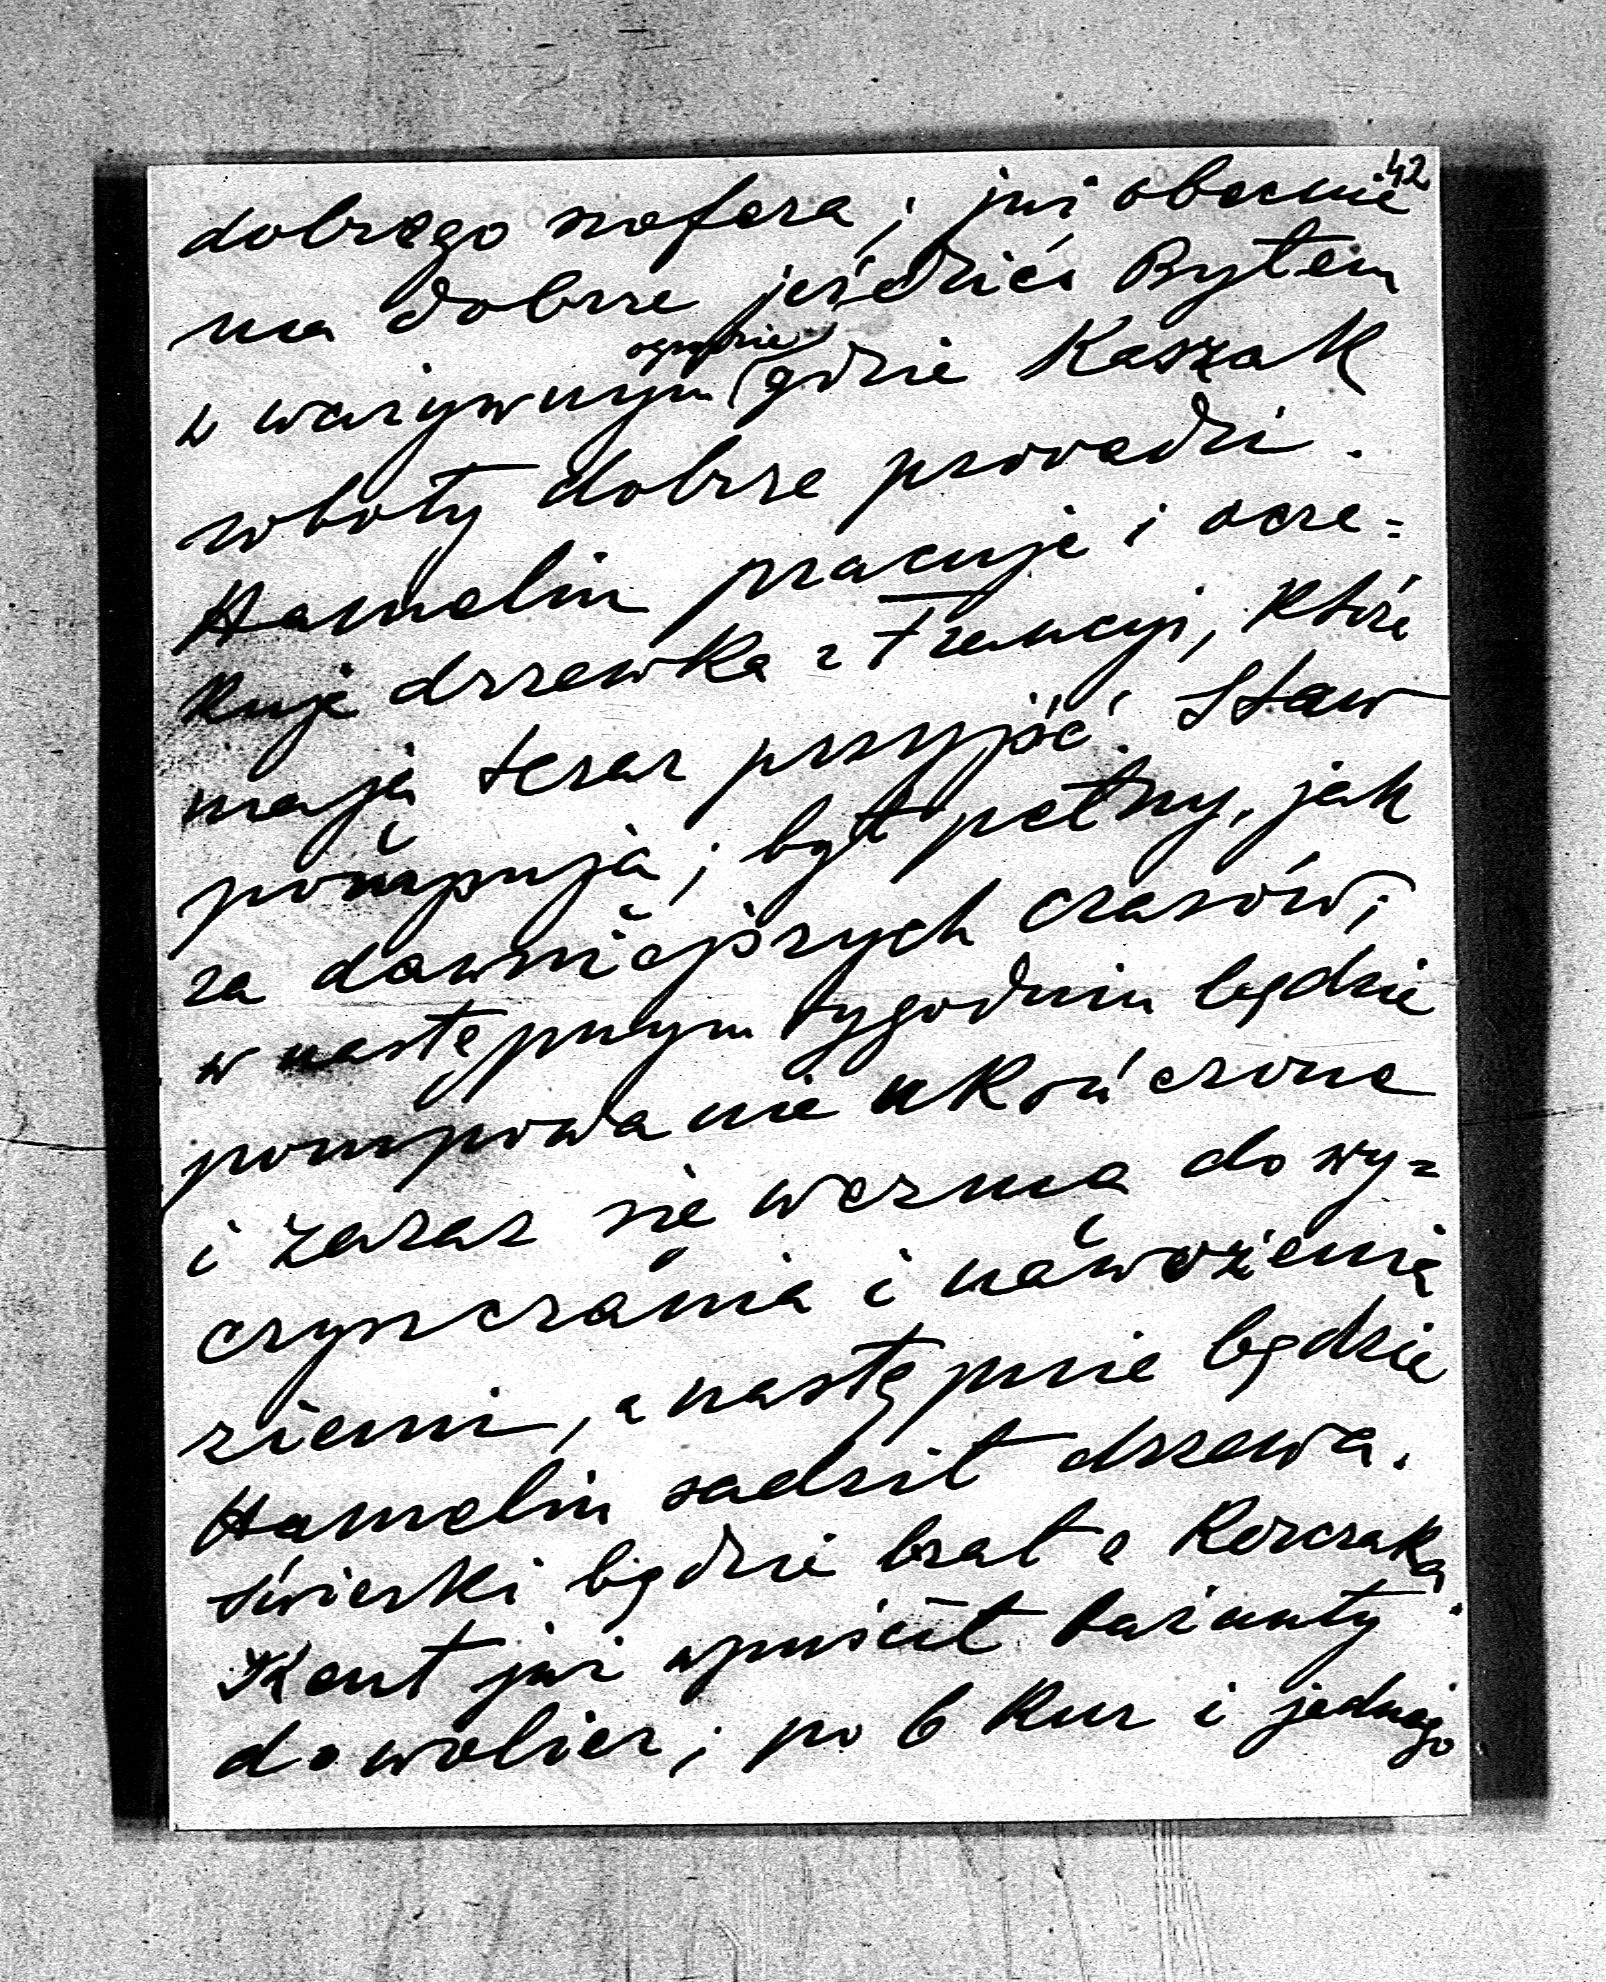 42
dobrego szofera; już obecnie
ma dobrze jeździć. Byłem
w warzywnym ogrodzie (gdzie Kaszak
roboty dobrze prowadzi.
Hamelin pracuje i ocze=
kuje drzewka z Francyi, które
mają teraz przyjść. Staw
pompują; był pełny, jak
za dawniejszych czasów;
w następnym tygodniu będzie
pompowanie ukończone
i zaraz się wezmą do wy=
czyszczania i nawożenia
ziemi, a następnie będzie
Hamelin sadził drzewa.
Świerki będzie brał z Korczaka.
Kent już wpuścił bażanty
do wolier; po 6 kur i jednego